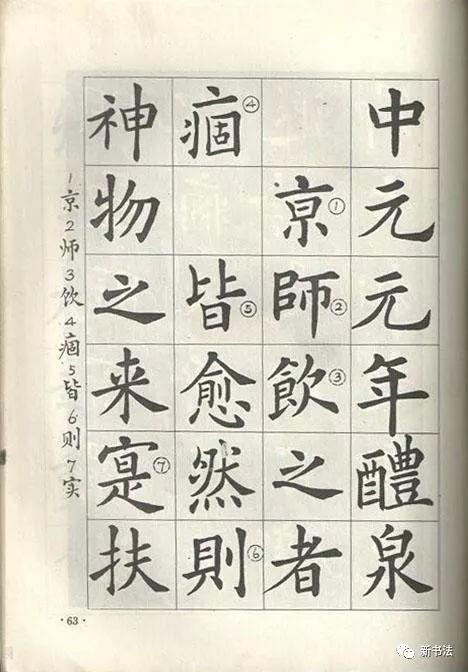 中元元年醴泉
亰①師②飲③之者
痼④皆⑤愈然則⑥
神物之来寔⑦扶
1京2师3饮4痼5皆6则7实
·63·
新书法